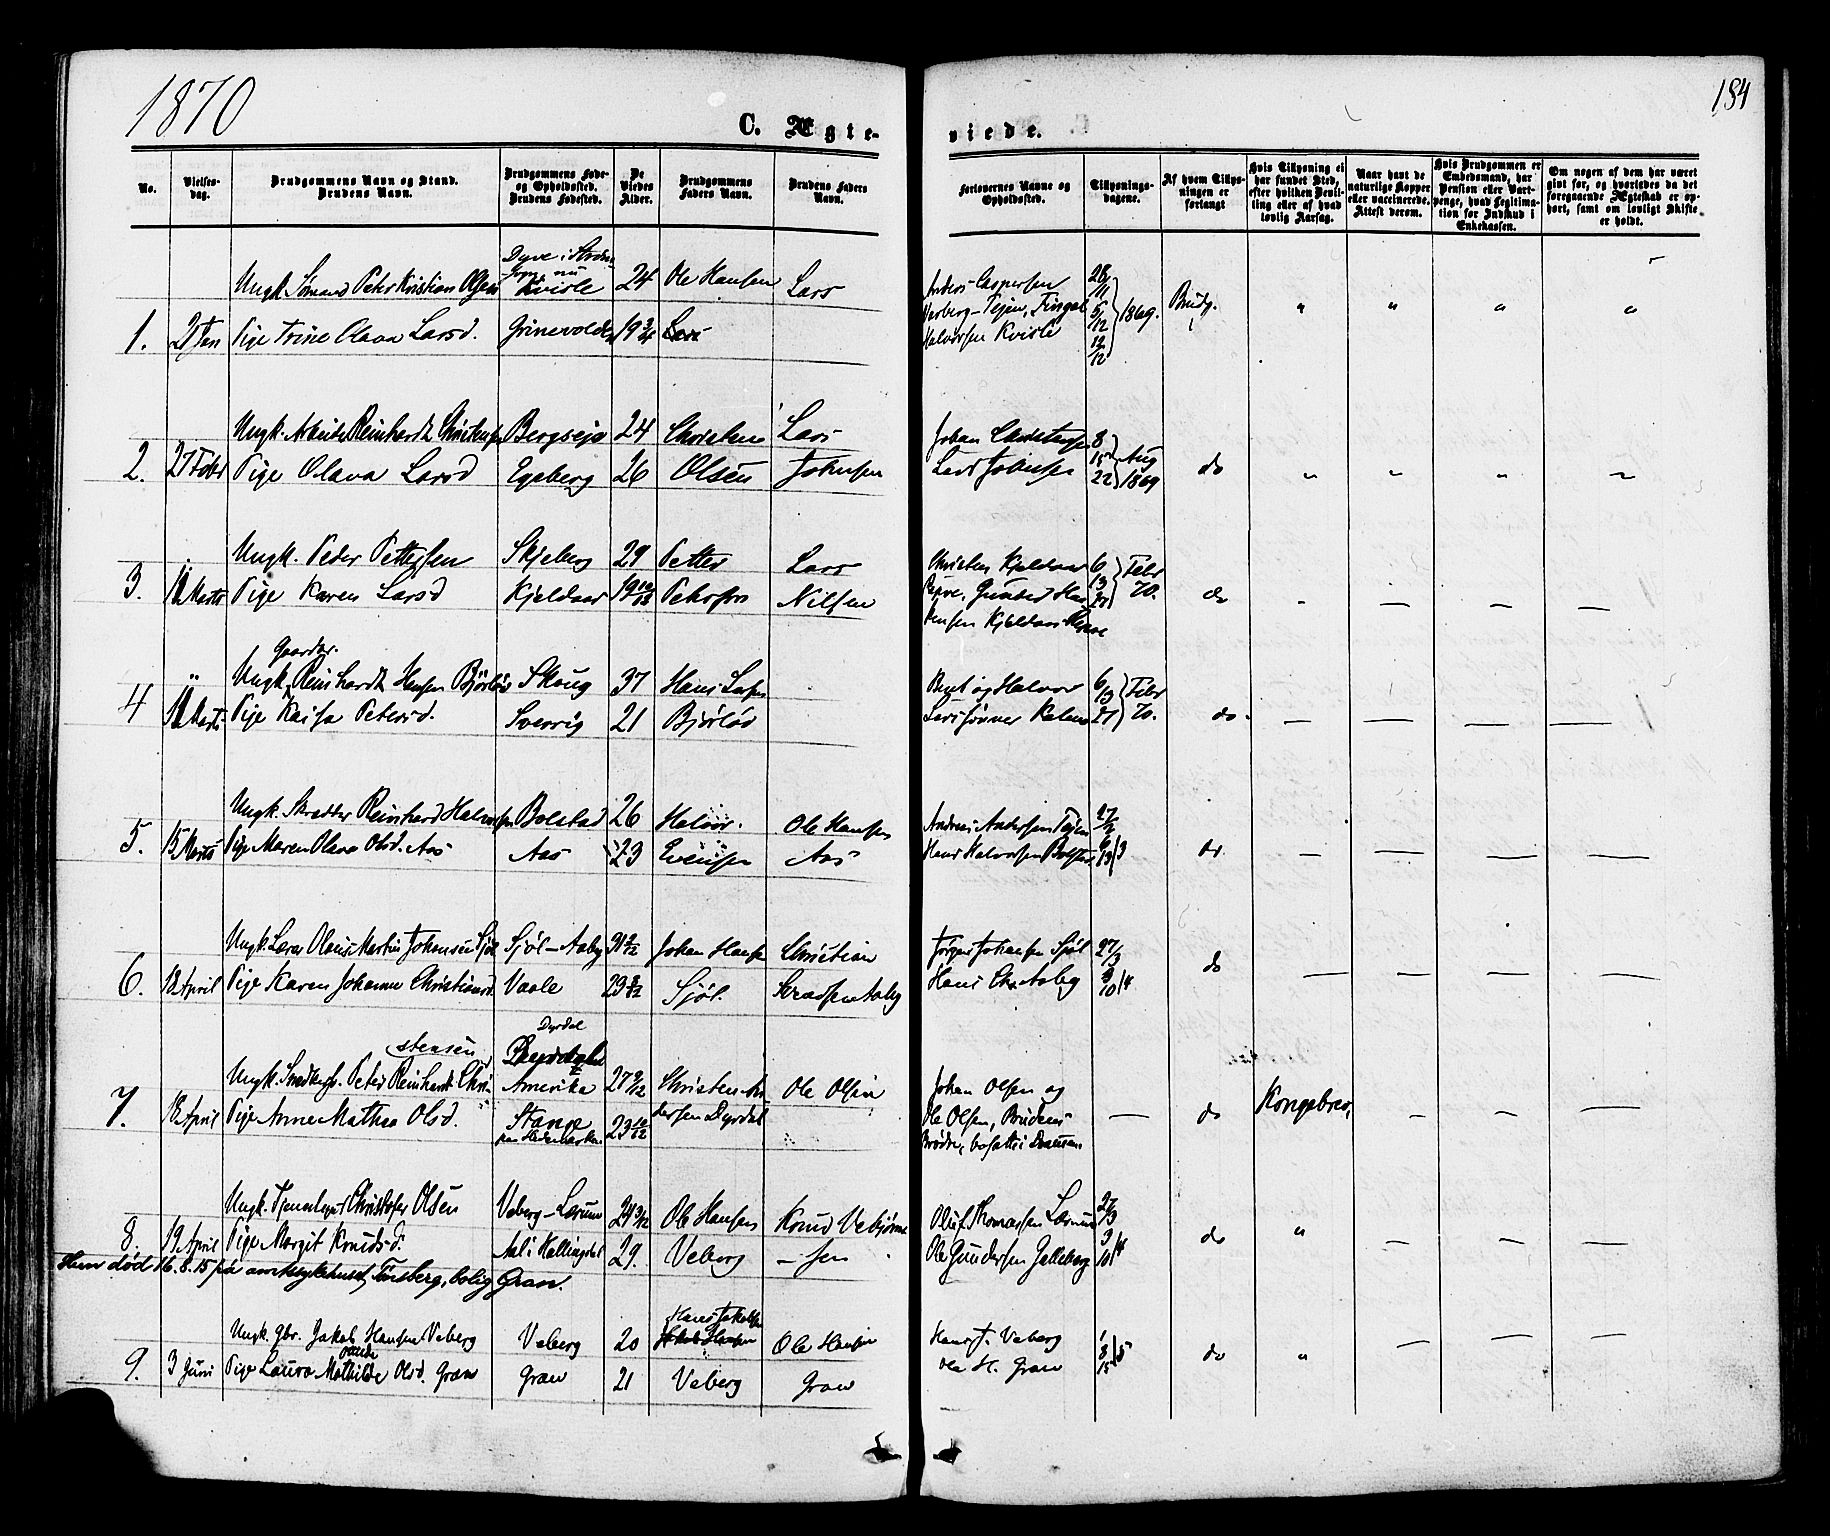 1870
184
C. Ægte-
viede.
No.
Vielses-
dag.
Brudgommens Navn og Stand.
Brudens Navn.
Brudgommens Føde-
og Opholdssted.
Brudens Fødested.
De
Viedes
Alder.
Brudgommens
Faders Navn.
Brudens Faders
Navn.
Forlovernes Navne og
Opholdssted.
Tillysnings-
dagene.
Af hvem Tillys-
ningen er
forlangt
Hvis Tillysning ei
har fundet Sted,
efter hvilken Bevil-
ling eller af hvad
lovlig Aarsag.
Naar havt de
naturlige Kopper
eller vaccinerede.
Attest derom.
Hvis Brudgommen er
Embedsmand, har
Pension eller Vart-
penge, hvad Legitima-
tion for Indskud i
Enkekassen.
Om nogen af dem har været
gift før, og hvorledes da det
foregaaende Ægteskab er op-
hørt, samt om lovligt Skifte
er holdt.
Ungk. Sømand Peter Kristian Olsen Kvisle 24 Ole Hansen Lars
Anders Caspersen 28/11
1. 2 Jan Pige Trine Olava Larsd. Grinevolden 19 3/4
5/12 1869. Brudg. " " " "
Halvorsen Kvisle 12/12
Ungk. Arbeider Reinhardt Christensen Bergseje 24 Christen Lars
Johan Christensen 8
2. 27 Febr Pige Olava Larsd Egeberg 26 Olsen Johnsen
Lars Johnsen 15 22 Aug 1869 do " " " "
Ungk. Peder Pettersen Skjeberg 29 Petter Lars
Christen Kjeldaas 6
3. Marts Pige Karen Larsd Kjeldaas 19 Nilsen
13 27 Febr 70. do – – – –
Gaardbr.
4 Ungk. Reinhardt Hansen Bjørløv Skoug 37 Hans
Bent og Halvor 6
Marts Pige Kaisa Petersd. Sverrig 21 Bjørløv
13 27 Febr 70. do. – – – –
Ungk. Skrædder Reinhard Halvorsen Bolstad 26 Halvor. Ole Hansen
Andreas Andersen Tejen 27/2
5. 15 Marts Pige Maren Olava Olsd. Aas Aas 23 Evensen Aas
Hans Halvorsen Bolstad 6 13/3 do. – – – –
Ungk. Lærer Olaus Martin Johansen Sjøl Sjøl – Aaby Johan Hansen Christian
Jørgen Johansen Sjøl 27/3
6. 18 April Pige Karen Johanne Christiansd. Vaale 23 Sjøl. Aaby
Hans Chr. Aaby 3 10/4 do – – – –
stensen
Dyrdal
Ungk. Peter Reinhardt Chri- Amerika 27 9/12 Christen An- Ole Olsen
Johan Olsen og
7. 18 April Pige Anne Mathea Olsd. Stange 23 10/12 dersen Dyrdal
Ole Olsen, Brudens — do Kongebrev, – – –
paa Hedemarken
Brødre, bosatte i Drammen
Ungk. Christofer Olsen Veberg – Lærum 24 3/12 Ole Hansen Knud Vebjørn-
Oluf Thomassen Lærum 27/3
8. 19 April Pige Margit Knudsd. Aal i Hallingdal 29. Veberg – sen
Ole Gundersen Jalleberg 3 10/4 do " – – –
Hun død 16.8.15 på amtssykehuset, Tønsberg, bolig Gran.
Hans Jakobsen
Ungk. gbr. Jakob Hansen Veberg Veberg 20 Ole Hansen
Hans J. Veberg 1
9. 3 Juni Pige Laura Mathilde Olsd. Gran Gran 21 Veberg Gran
Ole H. Gran 8 15/5 do " – – –